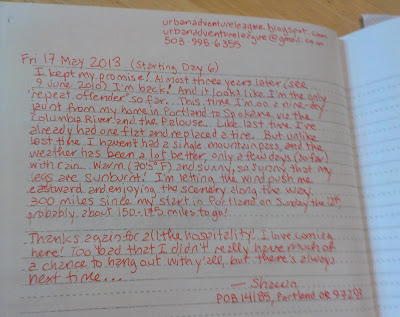 urbanadventureleague.blogspot.com
urbanadventureleague@gmail.com
503-995-6355
Fri 17 May 2013 (Starting Day 6)
I kept my promise! Almost three years later (see
9 June 2010) I'm back! And it looks like I'm the only
"repeat offender" so far... This time I'm on a nine-day
jaunt from my home in Portland to Spokane via the
Columbia River and the Palouse. Like last time I've
already had one flat and replaced a tire. But unlike
last time I haven't had a single mountain pass, and the
weather has been a lot better, only a few days (so far)
with rain. Warm (70's°F) and sunny, so sunny that my
legs are sunburnt! I'm letting the wind push me
eastward and enjoying the scenery along the way.
300 miles since my start in Portland on Sunday the 12th,
probably about 150-175 miles to go!
Thanks again for all the hospitality! I love coming
here! Too bad that I didn't really have much of
a chance to hang out with y'all, but there's always
next time...
— Shawn
POB 14185, Portland OR 97293